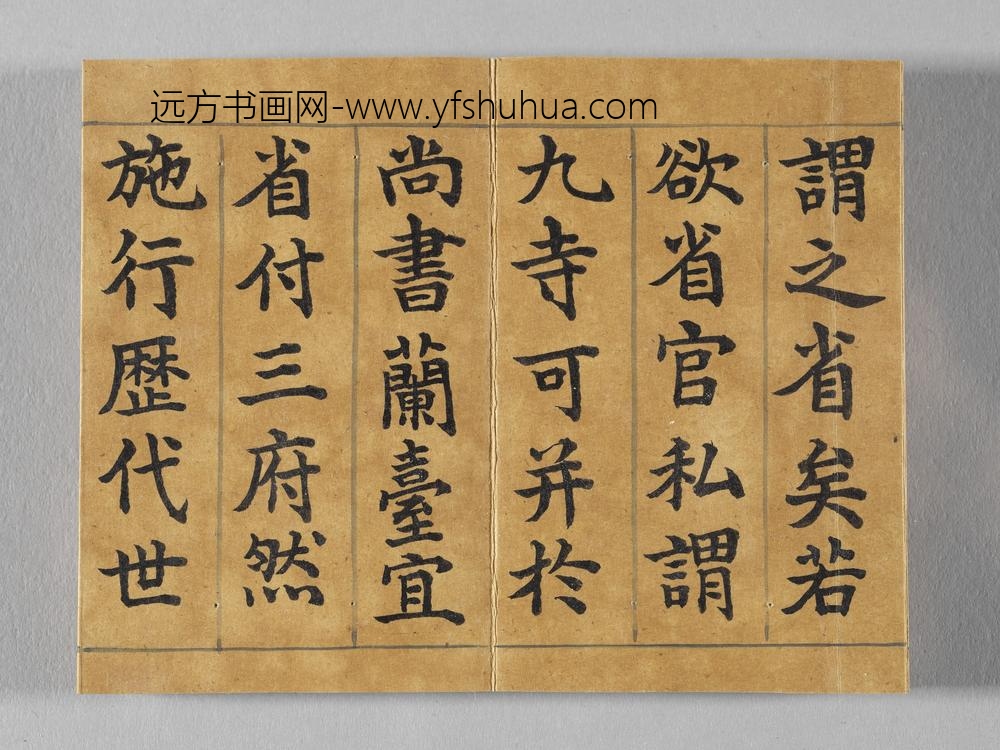 远方书画网-www.yfshuhua.com
謂之省矣若
欲省官私謂
九寺可并於
尚書蘭臺宜
省付三府然
施行歷代世